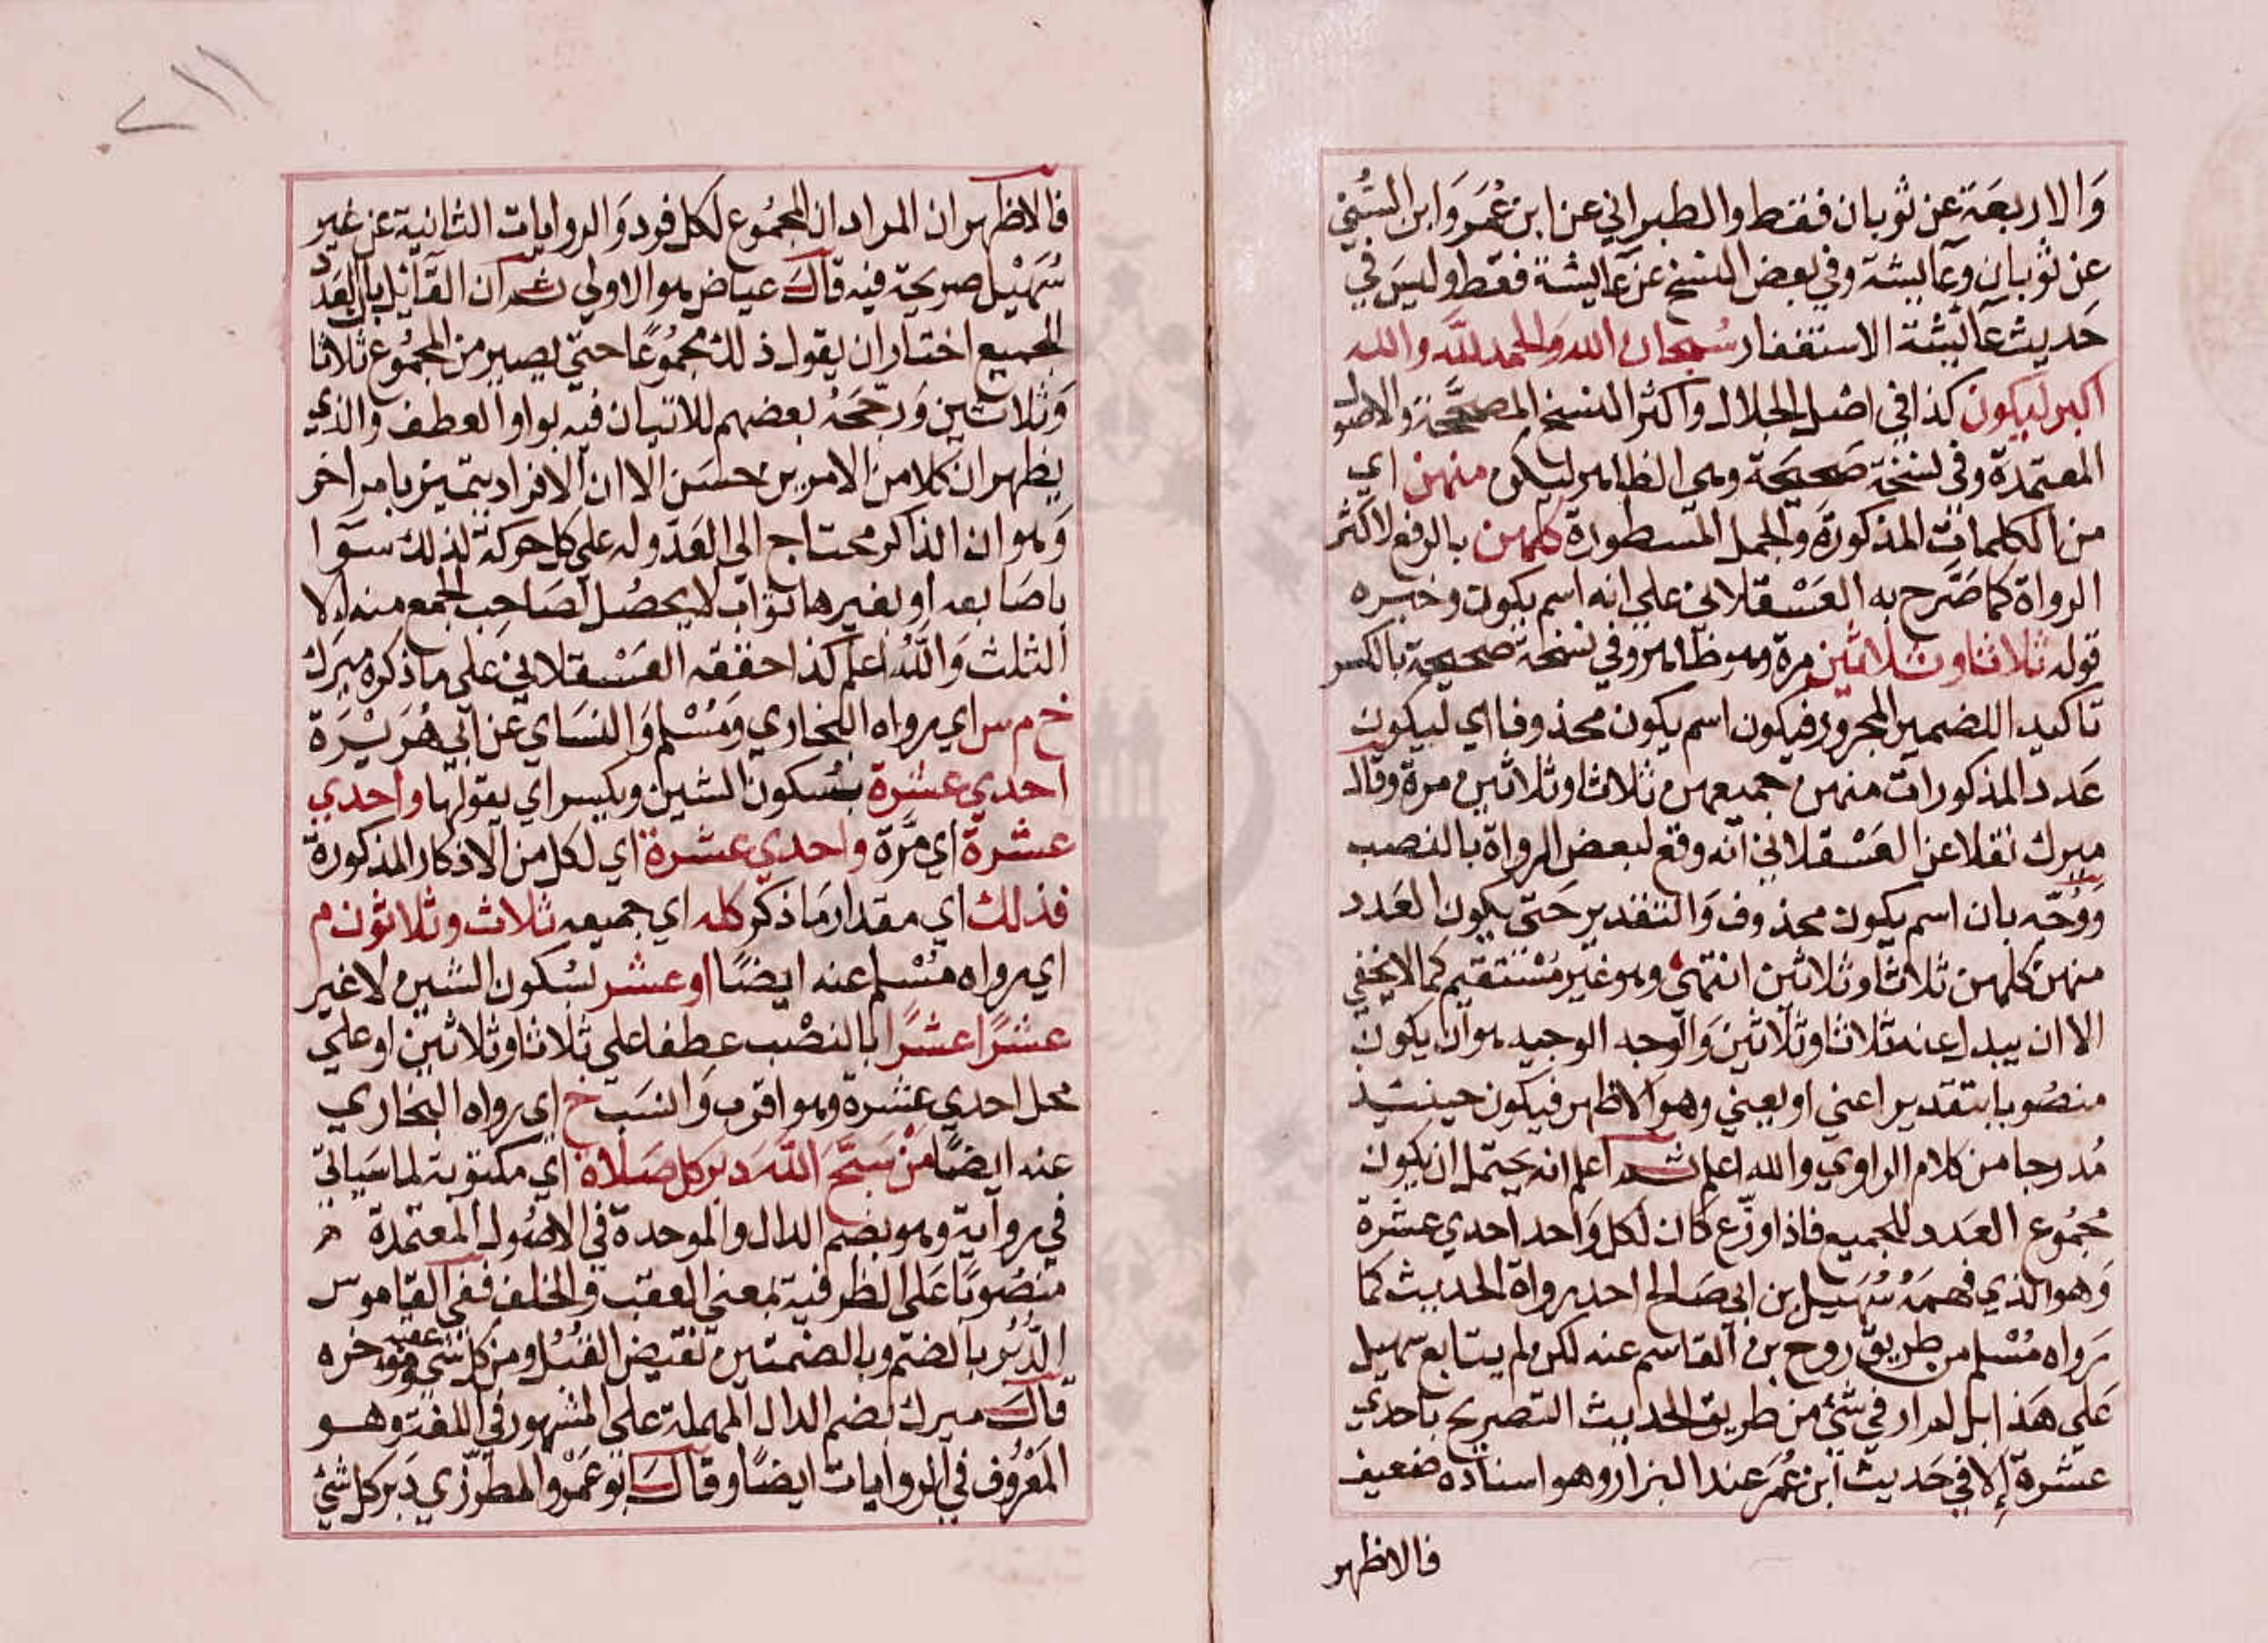 وَالاربعَة عن ثوبان فقط والطبراني عن ابن عُمَر وَابن السُّني
عن ثوبان وعَايشة وفي بعض النسخ عن عَايشة فقط وليسَ في
حَديث عَايشة الاستغفار سُبحان الله وَالحمد للّه والله
اكبر ليكون كذا في اصْل الجلال وَاكثر النسخ المصححَّة وَالاصُول
المعتمدة وفي نسْخة صَحيحَة وهي الظاهر ليكن منهن اي
من الكلمات المذكورَة وَالجمل المسطورة كلهن بالرفع لاكثر
الرواة كما صَرّح به العَسْقلاني على انه اسم يكون وخبره
قوله ثلاثا وثلاثين مرة وهو ظاهر وفي نسْخة صحيحة بالكسر
تاكيد اللضمير المجرور فيكون اسم يكون محذوفا اي ليكون
عَدد المذكورات منهن جميعهن ثلاثا وثلاثين مرة وقال
ميرك نقلا عن العَسْقلاني انه وقع لبعض الرواة بالنصب
وَوُجّه بان اسم يكون محذوف وَالتقدير حَتى يكون العَدد
منهن كلهن ثلاثا وثلاثين انتهى وهو غير مُسْتقيم كما لا يخفي
الا ان يبدل عنه ثلاثا وثلاثين وَالوجه الوجيه هو ان يكون
منصُوبا بتقدير اعني او يعني وهو الاظهر فيكون حينئيذ
مُدرجا من كلام الراوي والله اعلم ثم اعلم انه يحتمل ان يكون
مجمُوع العَدد للجميع فاذا وزّع كان لكل وَاحد احدي عشرة
وَهو الذي فهمَهُ سُهَيل بن ابي صَالح احد رواة الحديث كما
رَواه مُسْلم من طريق روح بن القاسم عنه لكن لم يتابع سهيل
عَلي هَذا بل لم ار في شئ من طريق الحديث التصريح باحدي
عشرة إلا في حَديث ابن عُمرَ عند البزار وهو اسناده ضعيف
فالاظهر
فالاظهر ان المراد ان المجمُوع لكل فرد وَالروايات الثانية عن غير
سُهَيْل صريحَة فيه قالَ عياض هو الاولي ثم ان القَايل بان العَدد
للجميع اختار ان يقول ذلك مجمُوعًا حتى يصير من المجمُوع ثلاثا
وَثلاثين وَرجحَهُ بعضهم للاتيان فيه بواو العطف والذي
يظهر ان كلا من الامرين حسَن الا ان الافراد يتميز بامر اخر
وَهو ان الذاكر محتاج الي العَدّ وله علي كل حركة لذلك سَوا
باصَابعه او بغيرها ثواب لا يحصُل لصَاحب الجمع منه الا
الثلث وَاللهُ اعلم كذا حققه العَسْقلاني علي ما ذكره ميرَك
خ م س اي رواه البخاري وَمُسْلم وَالنسَاي عن ابي هُرَيْرَة
احدي عشرة بسُكون الشين ويكسر اي يقولها واحدي
عشرة اي مَرَّة واحدي عشرة اي لكل من الاذكار المذكورة
فذلك اي مقدار مَا ذكر كله اي جميعه ثلاث وثلاثون م
اي رواه مُسْلم عنه ايضًا او عشر بسُكون الشين لا غير
عشرًا عشرًا بالنصْب عطفا علي ثلاثا وثلاثين او علي
محل احدي عشرة وهو اقرب وَانسَب خ اي رواه البخاري
عنه ايضًا مَنْ سَبَّحَ اللّهَ دبر كل صَلاة اي مكتوبة لما سَياتي
في رواية وهو بضم الدال والموحدة في الاصُول المعتمدة
منصُوبًا عَلي الظرفية بمعني العقب والخلف ففي القاموس
الدُّبُر بالضم وبالضمتين نقيض القبُل ومن كل شي عقبه ومؤخره
قالَ ميرك بضم الدال المهملة علي المشهور في اللغة وهو
المَعْرُوف في الروايات ايضًا وقالَ ابُو عَمْرو المطرّزي دَبر كل شئ